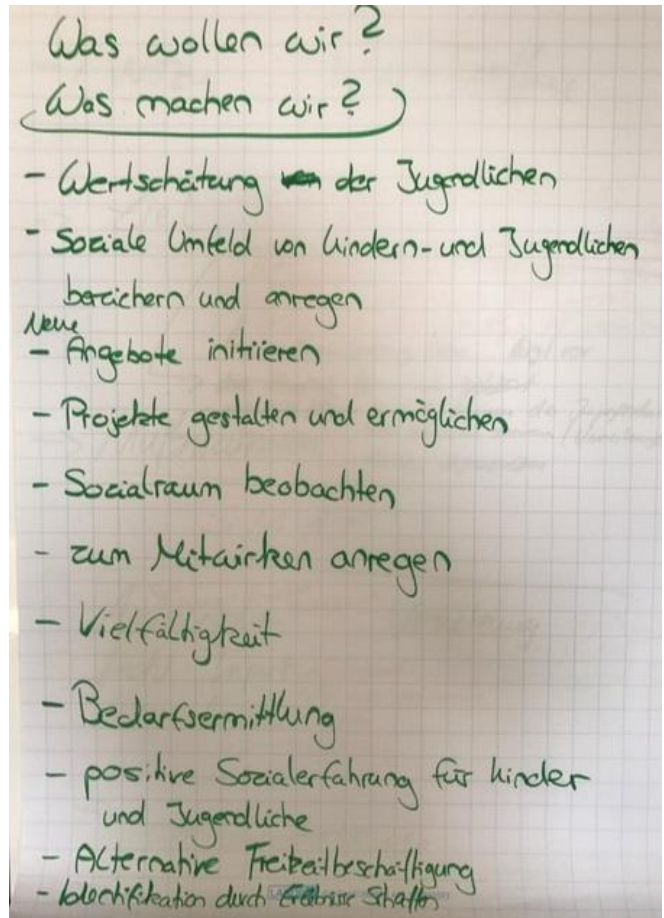 Was wollen wir?
Was machen wir?
- Wertschätung der Jugendlichen
- Soziale Umfeld von Kindern- und Jugendlichen
bereichern und anregen
Neue
- Angebote initiieren
- Projekte gestalten und ermöglichen
- Sozialraum beobachten
- zum Mitwirken anregen
- Vielfältigkeit
- Bedarfsermittlung
- positive Sozialerfahrung für Kinder
und Jugendliche
- Alternative Freizeitbeschäftigung
- Identifikation durch Erlebnisse Schaffen